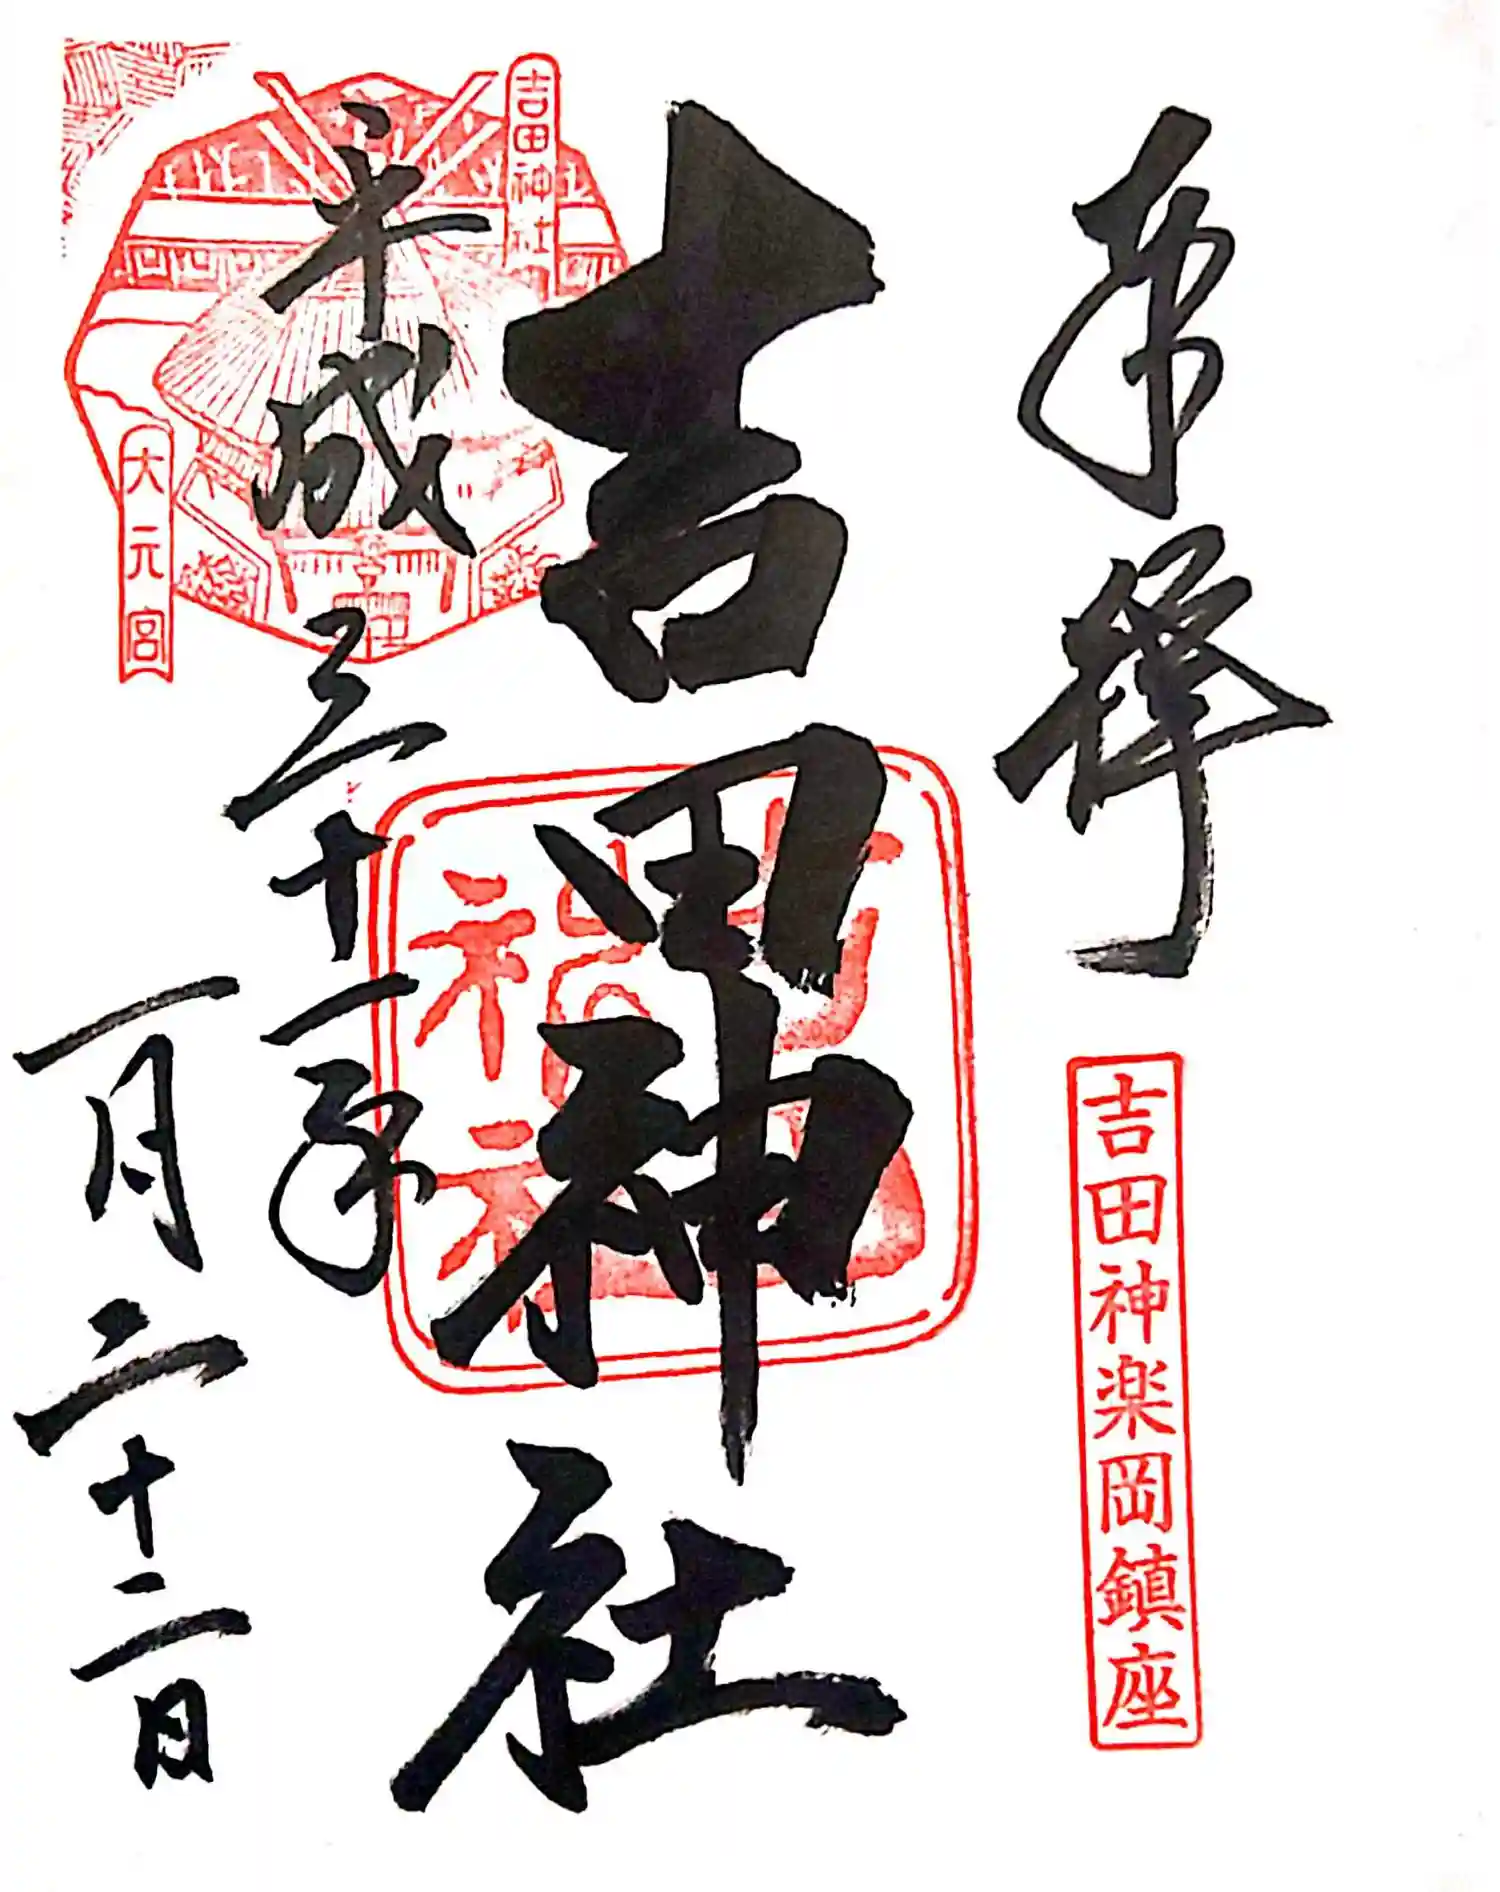 奉拝
吉田神楽岡鎮座
吉田神社
吉田神社
平成三十一年
一月二十二日
大元宮